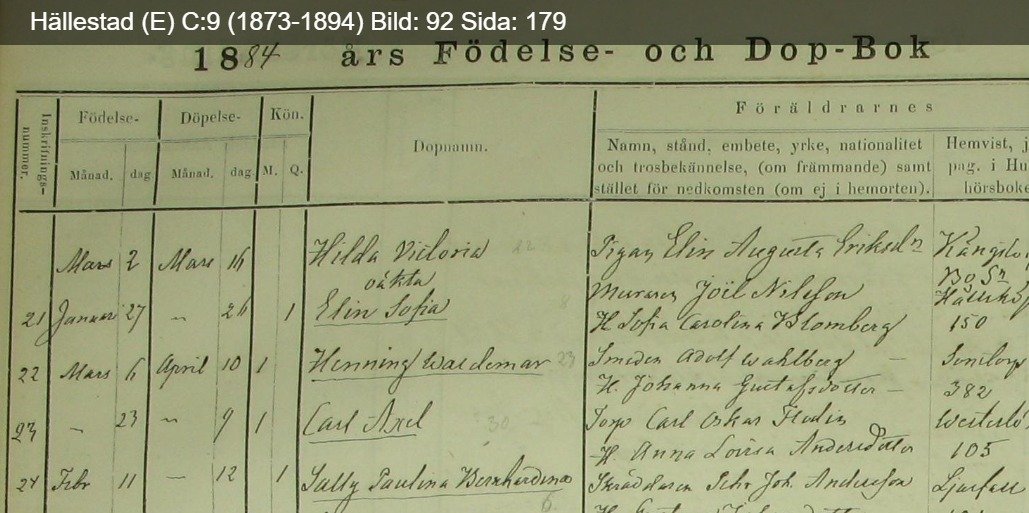 Hällestad (E) C:9 (1873-1894) Bild: 92 Sida: 179
1884 års Födelse- och Dop-Bok
Inskrifnings-
nummer.
Födelse-
Månad. dag
Döpelse-
Månad. dag.
Kön.
M. Q.
Dopnamn.
Föräldrarnes
Namn, stånd, embete, yrke, nationalitet
och trosbekännelse, (om främmande) samt
stället för nedkomsten (om ej i hemorten).
Hemvist, j
pag. i Hu
hörsboke
Mars 2 Mars 16 Hilda Victoria Pigan Elin Augusta Eriksdr
oäkta
21 Januari 27 " 26 1 Elin Sofia Muraren Joël Nilsson
H Sofia Carolina Blomberg 150
22 Mars 6 April 10 1 Henning Waldemar 23 Smeden Adolf Wahlberg
H Johanna Gustafsdotter 382
23 " 23 " 9 1 Carl Axel 30 Torp Carl Oskar Flodin
H Anna Lovisa Andersdotter 105
24 Febr 11 " 12 1 Sally Paulina Bernhardina Skräddaren Johan Andersson
6.